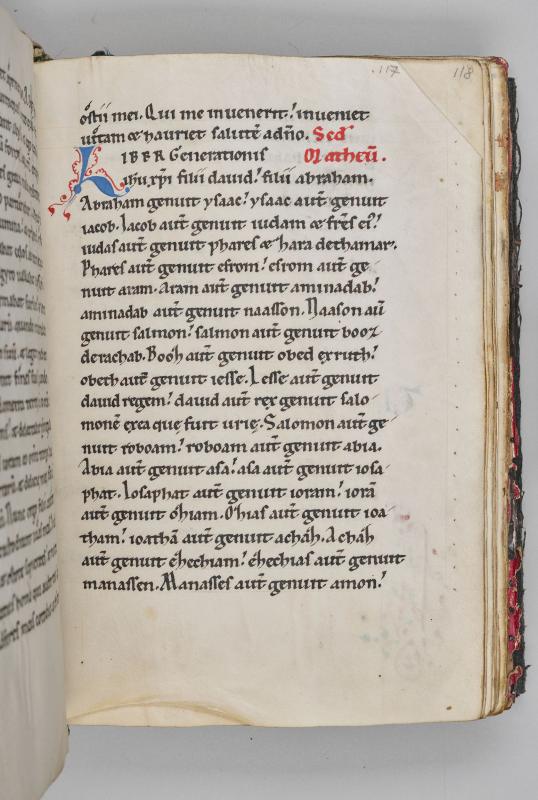 117 118
ostii mei. Qui me invenerit: inveniet
vitam & hauriet salutē a dño. Sed̄
LIBER Generationis Matheū.
ihu xp̄i filii david: filii abraham.
Abraham genuit ysaac: ysaac aut̄ genuit
iacob. Iacob aut̄ genuit iudam & fr̄es ei9:
iudas aut̄ genuit phares & zara de thamar.
Phares aut̄ genuit esrom: esrom aut̄ ge-
nuit aram. Aram aut̄ genuit aminadab:
aminadab aut̄ genuit naasson. Naason aū
genuit salmon: salmon aut̄ genuit booz
de rachab. Booz aut̄ genuit obed ex ruth:
obeth aut̄ genuit iesse. Iesse aut̄ genuit
david regem: david aut̄ rex genuit salo-
monē ex ea que fuit urię. Salomon aut̄ ge-
nuit roboam: roboam aut̄ genuit abia.
Abia aut̄ genuit asa: asa aut̄ genuit iosa-
phat. Iosaphat aut̄ genuit ioram: iorā
aut̄ genuit oziam. Ozias aut̄ genuit ioa-
tham: ioathā aut̄ genuit achaz. Achaz
aut̄ genuit ezechiam: ezechias aut̄ genuit
manassen. Manasses aut̄ genuit amon: